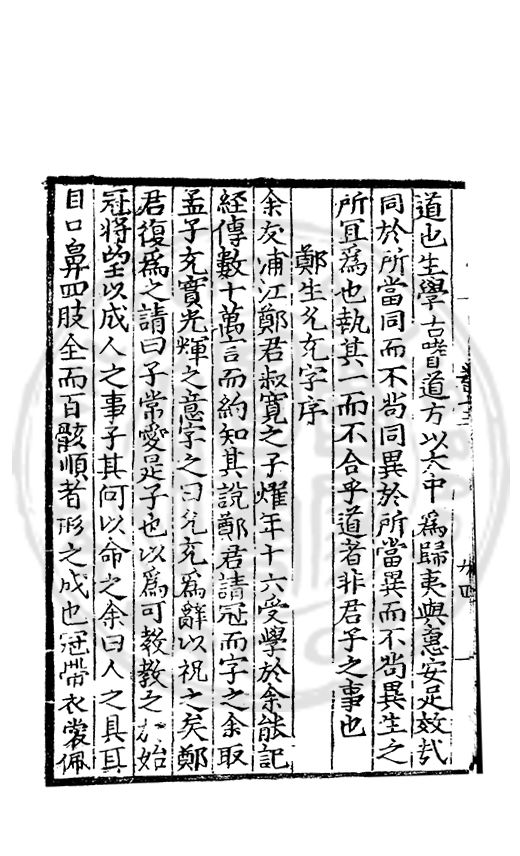 道也生學古嗜道方以大中爲歸夷與惠安足效哉
同於所當同而不尚同異於所當異而不尚異生之
所冝爲也執其一而不合乎道者非君子之事也
鄭生允充字序
余友浦江鄭君叔寬之子燿年十六受學於余能記
經傳數十萬言而約知其說鄭君請冠而字之余取
孟子充實光輝之意字之曰允充爲辭以祝之矣鄭
君復爲之請曰子常愛是子也以爲可教教之於始
冠將望以成人之事子其何以命之余曰人之具耳
目口鼻四肢全而百骸順者形之成也冠帶衣裳佩